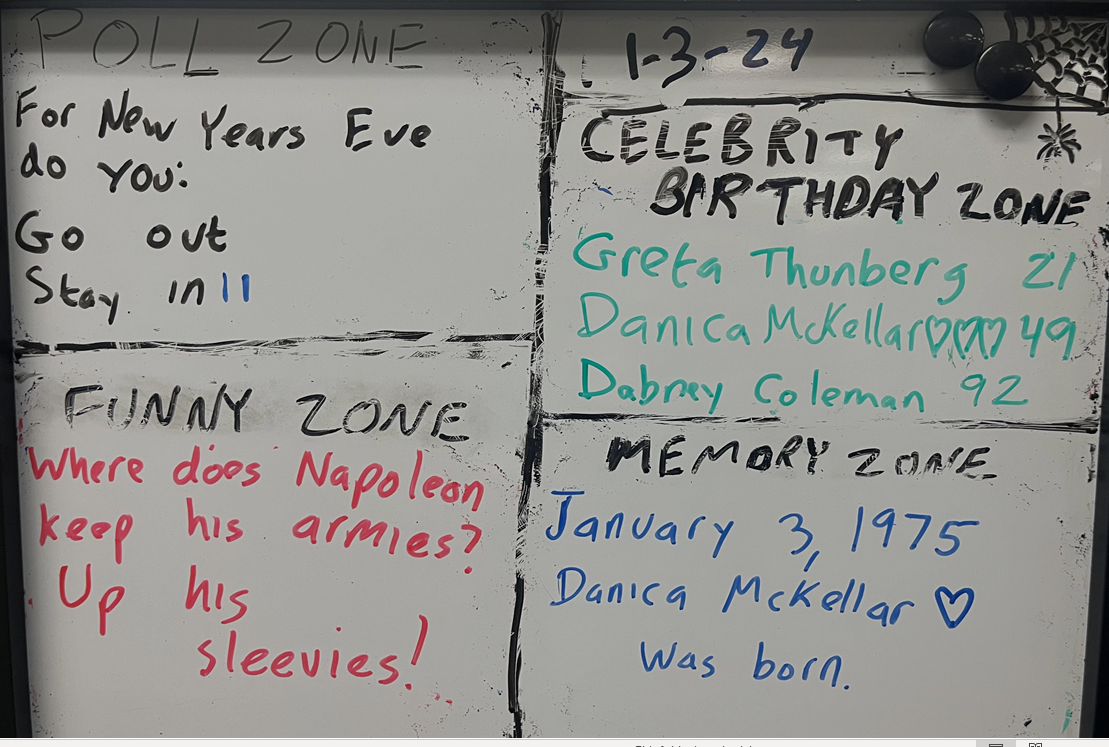 POLL ZONE
For New Years Eve
do YOU:
Go out
Stay in II
FUNNY ZONE
Where does Napoleon
keep his armies?
Up his
sleevies!
1-3-24
CELEBRITY
BIRTHDAY ZONE
Greta Thunberg 21
Danica McKellar♡♡♡ 49
Dabney Coleman 92
MEMORY ZONE
January 3, 1975
Danica McKellar ♡
was born.